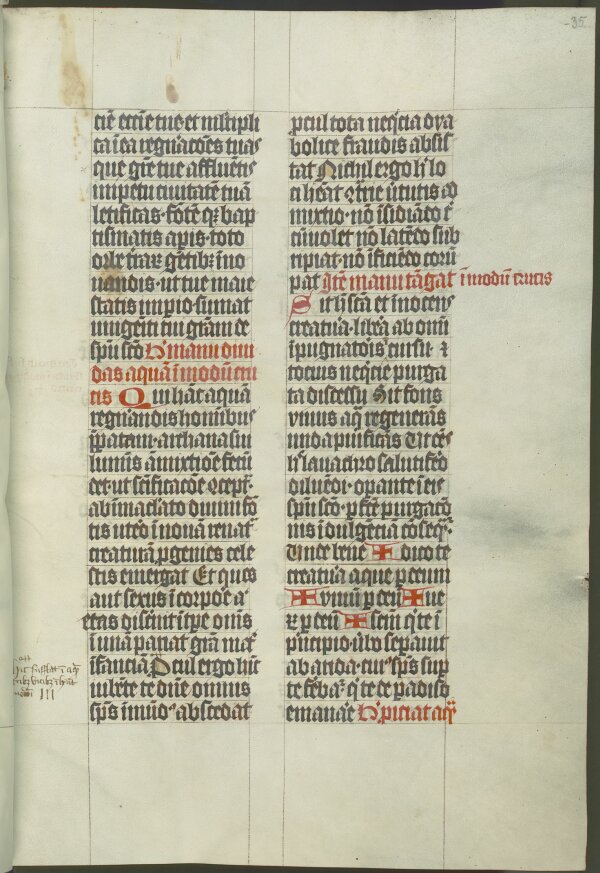 35
ciē eccīe tue et multipli
ca ī ea regnacōes tuas
que grē tue affluētis
impetu ciuitatē tuā
letificas · fōtē qȝ bap
tismatis apis · toto
orbe trar gētibȝ ino
uandis · ut tue maie
statis impio sumat
unigeniti tui grām de
spū scō Hͥ manu diui
das aquā ī modū cru
cis Qui hāc aquā
regnandis hominibus
ꝑpatam · archana sui
luminis āmixtiōe fecū
det · ut scīficacōe ꝯcept
ab īmaclato diuini fō
tis utero ī nouā renat
creaturā ꝓgenies cele
stis emergat Et quos
aut sexus ī corpore a
etas discnit ī tpe oms
ī unā pariat grā mat
ī fanciā Procul ergo huc
iubēte te dūe omnis
sps īmūdꝰ abscedat
ꝓcul tota neqͥcia dya
bolice fraudis absis
tat Nichil ergo hͥ lo
ci heat ꝯtrie ūtutis ꝯ
mixtio · nō īsidiādo c
cūuolet nō latēdo sub
ripiat · nō īficiēdo corū
pat Itē manu tāgat ī modū crucis
Sit hͥ scā et inocens
creatura · libra ab omi
īpugnatoris īcursu · ⁊
tocius neqͥcie purga
ta discessu Sit fons
viuus aqͣ regenerās
unda purificās Ut oēs
hͥ lauachro salutifēo
diluēdi · oꝑante ī eis
spū scō · ꝑfcte purgacō
nis īdulgēciā cōseqͣt ·
Unde bene ✠ dico te
creatura aque ꝑ deum
✠ viuū ꝑ deū ✠ ue
rū ꝑ deū ✠ scm qͥ te ī
pͥncipio ūbo sepauit
ab arida · cuiꝰ sps sup
te febat · qͥ te de padiso
emanare Hͥ ꝓiciat aqͣ
III